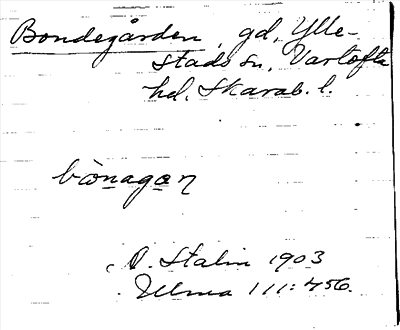 Bondegården, gd, Ylle-
stads sn, Vartofta
hd. Skarab. l.
bònagan
O. Stalin 1903
Ulma 111:456.